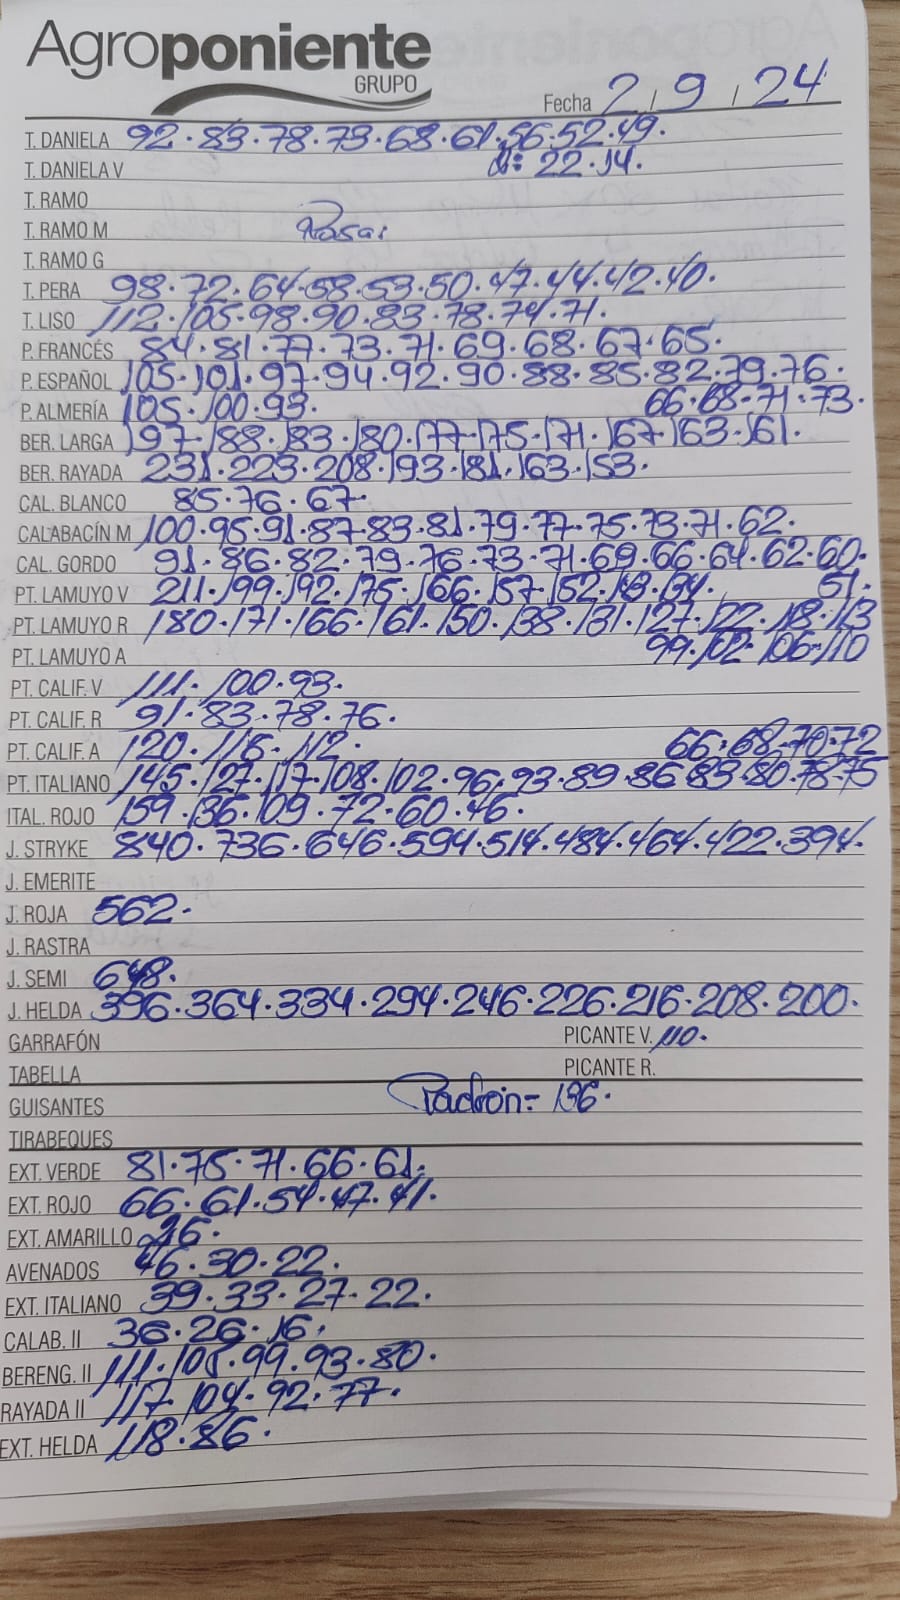 Agroponiente
GRUPO
Fecha 2 / 9 / 24
T. DANIELA 92.83.78.73.68.61.56.52.49.
T. DANIELA V d: 22.14.
T. RAMO
T. RAMO M Rosa:
T. RAMO G
T. PERA 98.72.64.58.53.50.47.44.42.40.
T. LISO 112.105.98.90.83.78.74.71.
P. FRANCÉS 84.81.77.73.71.69.68.67.65.
P. ESPAÑOL 105.101.97.94.92.90.88.85.82.79.76.
P. ALMERÍA 105.100.93. 66.68.71.73.
BER. LARGA 197.188.183.180.177.175.171.167.163.161.
BER. RAYADA 231.223.208.193.181.163.153.
CAL. BLANCO 85.76.67.
CALABACÍN M 100.95.91.87.83.81.79.77.75.73.71.62.
CAL. GORDO 91.86.82.79.76.73.71.69.66.64.62.60.
PT. LAMUYO V 211.199.192.175.166.157.152.143.134. 51.
PT. LAMUYO R 180.171.166.161.150.138.131.127.122.118.113
PT. LAMUYO A 99.102.106.110
PT. CALIF. V 111.100.93.
PT. CALIF. R 91.83.78.76.
PT. CALIF. A 120.116.112. 66.68.70.72
PT. ITALIANO 145.127.117.108.102.96.93.89.86.83.80.78.75
ITAL. ROJO 159.136.109.72.60.46.
J. STRYKE 840.736.646.594.514.484.464.422.394.
J. EMERITE
J. ROJA 562.
J. RASTRA
J. SEMI 648.
J. HELDA 396.364.334.294.246.226.216.208.200.
GARRAFÓN PICANTE V. 110.
TABELLA PICANTE R.
GUISANTES Padrón = 136.
TIRABEQUES
EXT. VERDE 81.75.71.66.61.
EXT. ROJO 66.61.54.47.41.
EXT. AMARILLO 26.
AVENADOS 46.30.22.
EXT. ITALIANO 39.33.27.22.
CALAB. II 36.26.16.
BERENG. II 111.105.99.93.80.
RAYADA II 117.104.92.77.
EXT. HELDA 118.86.